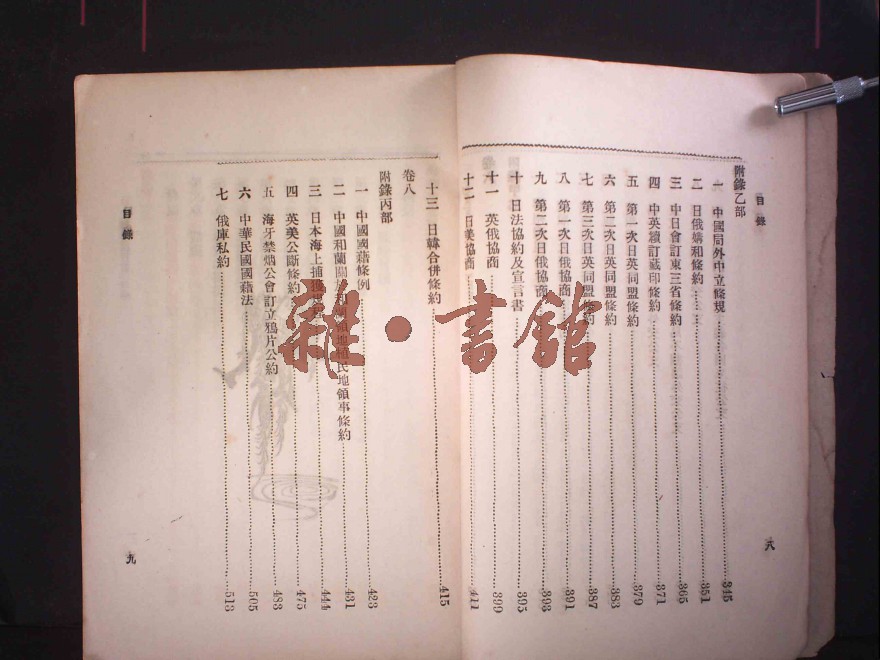 目錄
附錄乙部
一 中國局外中立條規 345
二 日俄媾和條約 351
三 中日會訂東三省條約 365
四 中英續訂藏印條約 371
五 第一次日英同盟條約 379
六 第二次日英同盟條約 383
七 第三次日英同盟條約 387
八 第一次日俄協商 391
九 第二次日俄協商 393
十 日法協約及宣言書 395
十一 英俄協商 399
十二 日美協商 411
八
十三 日韓合併條約 415
卷八
附錄丙部
一 中國國籍條例 423
二 中國和蘭關於和蘭領地殖民地領事條約 431
三 日本海上捕獲 444
四 英美公斷條約 475
五 海牙禁烟公會訂立鴉片公約 483
六 中華民國國籍法 505
七 俄庫私約 513
目錄
九
雜·書館